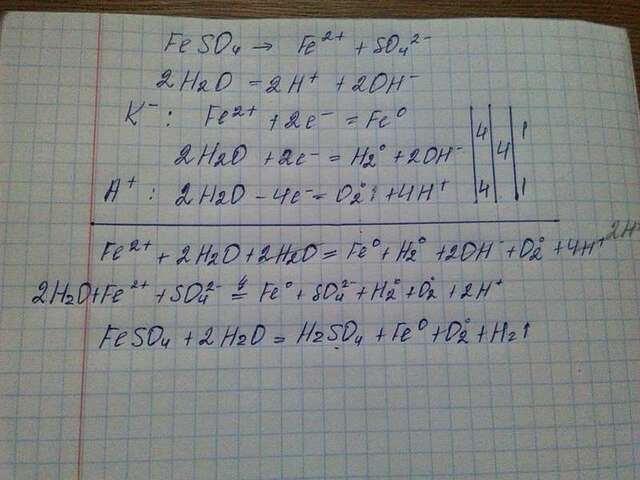 FeSO₄ → Fe²⁺ + SO₄²⁻
2H₂O = 2H⁺ + 2OH⁻
K⁻: Fe²⁺ + 2e⁻ = Fe⁰
2H₂O + 2e⁻ = H₂⁰ + 2OH⁻ | 4 | 4 | 1
A⁺: 2H₂O - 4e⁻ = O₂⁰↑ + 4H⁺ | 4 | | 1
Fe²⁺ + 2H₂O + 2H₂O = Fe⁰ + H₂⁰ + 2OH⁻ + O₂⁰ + 4H⁺ 2H⁺
2H₂O + Fe²⁺ + SO₄²⁻ = Fe⁰ + SO₄²⁻ + H₂⁰ + O₂⁰ + 2H⁺
FeSO₄ + 2H₂O = H₂SO₄ + Fe⁰ + O₂⁰ + H₂↑